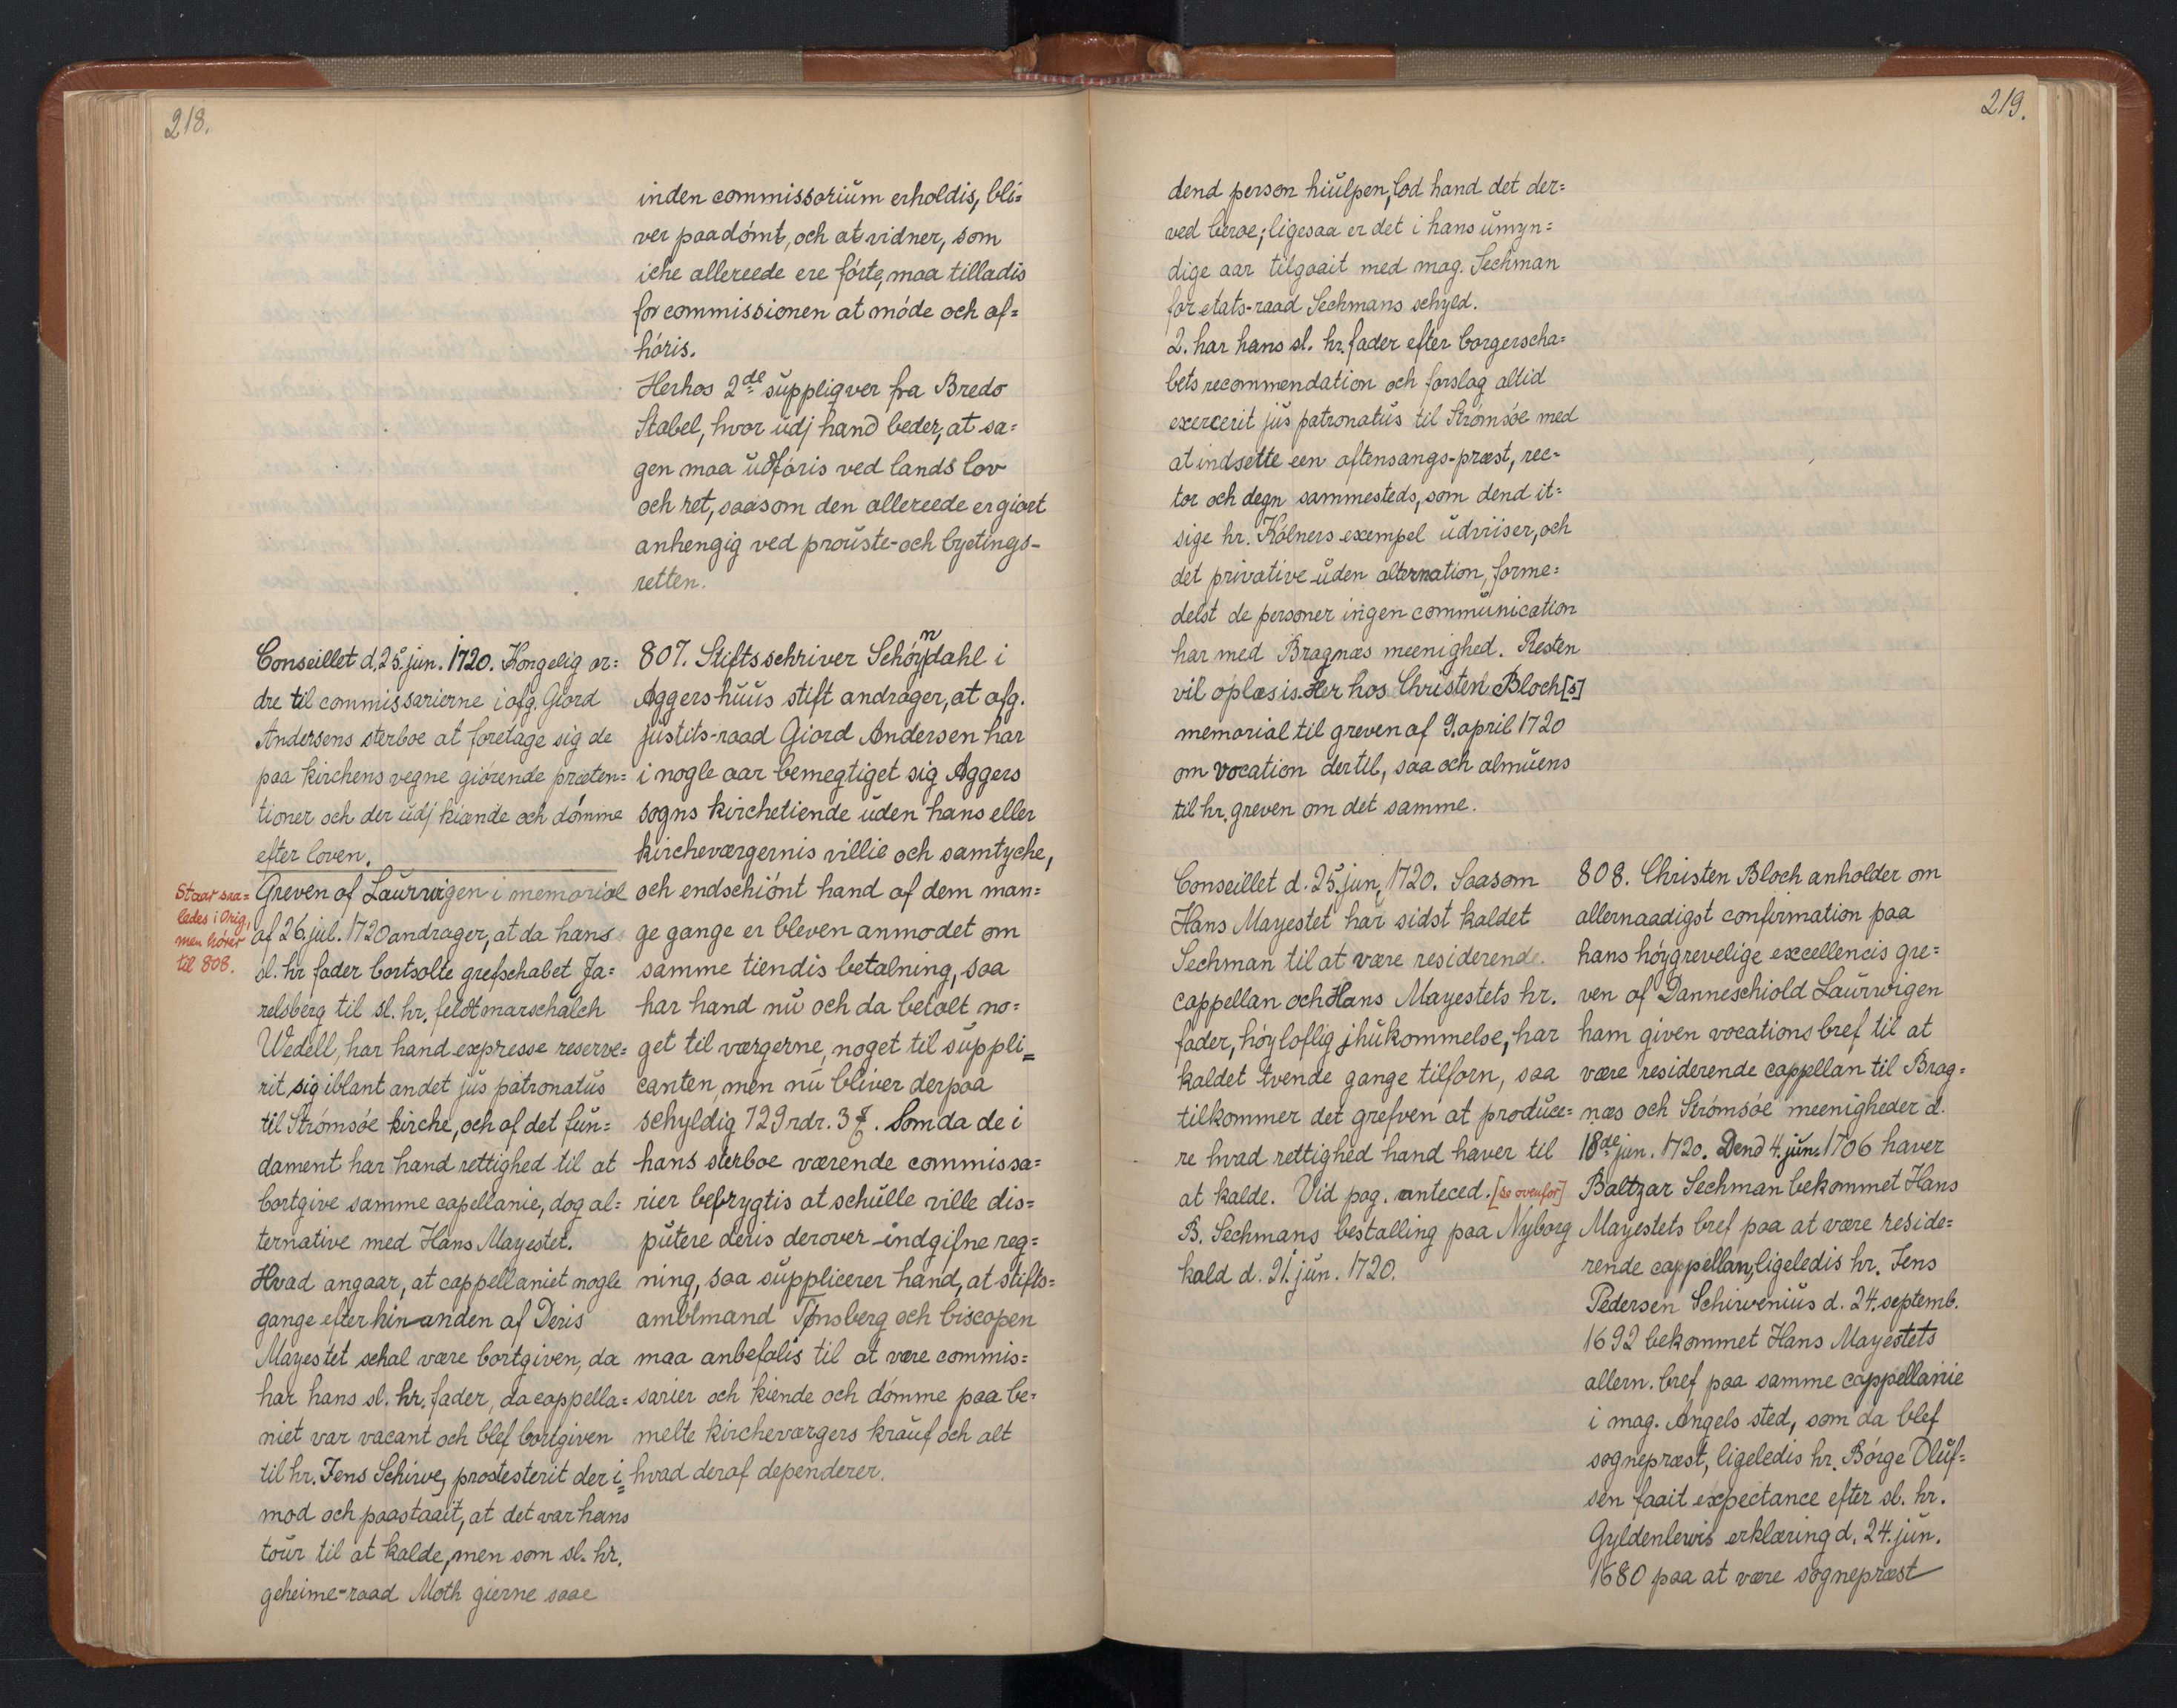 218.
inden commissorium erholdis, bli=
ver paadómt, och at vidner, som
iche allereede ere fórte, maa tilladis
for commissionen at móde och af=
hóris.
Herhos 2de suppliqver fra Bredo
Stabel, hvor udj hand beder, at sa=
gen maa udfóris ved lands lov
och ret, saasom den allereede er giort
anhengig ved prouste- och byetings-
retten.
Conseillet d. 25. jun. 1720. Kongelig or=
dre til commissarierne i afg. Giord
Andersens sterboe at foretage sig de
paa kirchens vegne giórende præten=
tioner och der udj kiænde och dómme
efter loven.
Staar saa=
ledes i Orig,
men hórer
til 808.
Greven af Laurwigen i memorial
af 26. jul. 1720 andrager, at da hans
sl. hr fader bortsolte grefschabet Ja=
relsberg til sl. hr. feldtmarschalch
Wedell, har hand expresse reserve=
rit sig iblant andet jus patronatus
til Strómsóe kirche, och af det fun=
dament har hand rettighed til at
bortgive samme capellanie, dog al=
ternative med Hans Mayestet.
Hvad angaar, at cappellaniet nogle
gange efter hinanden af Deris
Mayestet schal være bortgiven, da
har hans sl. hr. fader, da cappella=
niet var vacant och blef bortgiven
til hr. Jens Schirve, prostesterit der i=
mod och paastaait, at det var hans
tour til at kalde, men som sl. hr.
geheime-raad Moth gierne saae
807. Stiftsschriver Schóyndahl i
Aggershuus stift andrager, at afg.
justits-raad Giord Andersen har
i nogle aar bemegtiget sig Aggers
sogns kirchetiende uden hans eller
kircheværgernis villie och samtyche,
och endschiónt hand af dem man=
ge gange er bleven anmodet om
samme tiendis betalning, saa
har hand nu och da betalt no=
get til værgerne, noget til suppli=
canten, men nu bliver derpaa
schyldig 729 rdr. 3 ₰. Som da de i
hans sterboe værende commissa=
rier befrygtis at schulle ville dis=
putere deris derover indgifne reg=
ning, saa supplicerer hand, at stifts=
ambtmand Tonsberg och biscopen
maa anbefalis til at være commis=
sarier och kiende och dómme paa be=
melte kircheværgers krauf och alt
hvad deraf dependerer.
219.
dend person hiulpen, lod hand det der=
ved beroe; ligesaa er det i hans umyn=
dige aar tilgaait med mag. Sechman
for etats-raad Sechmans schyld.
2. har hans sl. hr. fader efter borgerscha=
bets recommendation och forslag altid
exercerit jus patronatus til Strómsóe med
at indsette een aftensangs-præst, rec=
tor och degn sammesteds, som dend it=
sige hr. Kólners exempel udviiser, och
det privative uden alternation, forme=
delst de personer ingen communication
har med Bragnæs meenighed. Resten
vil oplæsis. Her hos Christen Bloch[s]
memorial til greven af 9. april 1720
om vocation dertil, saa och almuens
til hr. greven om det samme.
Conseillet d. 25. jun. 1720. Saasom
Hans Mayestet har sidst kaldet
Sechman til at være residerende.
cappellan och Hans Mayestets hr.
fader, hóyloflig jhukommelse, har
kaldet tvende gange tilforn, saa
tilkommer det grefven at produce=
re hvad rettighed hand haver til
at kalde. Vid pag. anteced. [se ovenfor]
B. Sechmans bestalling paa Nyborg
kald d. 21. jun. 1720.
808. Christen Bloch anholder om
allernaadigst confirmation paa
hans hóygrevelige excellencis gre=
ven af Danneschiold Laurwigen
ham given vocations bref til at
være residerende cappellan til Brag=
næs och Strómsóe meenigheder d.
18de jun. 1720. Dend 4. jun. 1706 haver
Baltzar Sechman bekommet Hans
Mayestets bref paa at være reside=
rende cappellan, ligeledis hr. Jens
Pedersen Schirvenius d. 24. septemb.
1692 bekommet Hans Mayestets
allern. bref paa samme cappellanie
i mag. Angels sted, som da blef
sognepræst, ligeledis hr. Bórge Oluf=
sen faait expectance efter sl. hr.
Gyldenlewis erklæring d. 24. jun.
1680 paa at være sognepræst